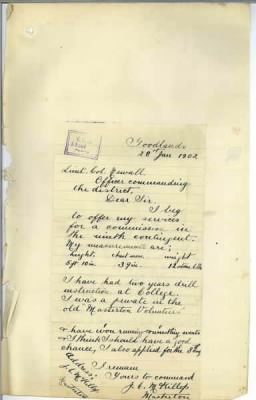 Goodlands
20 Jan 1902
Lieut Col. Newall
Officer commanding
the district.
Dear Sir.
I beg
to offer my services
for a commission in
the ninth contingent.
My measurements are;
height. chest meas. weight
5ft 10in 39in.
I have had two years drill
instruction at College.
I was a private in the
old Masterton Volunteers
& have won running
& I think I should have a good
chance, I also applied for the 8th
I remain
Yours to command
J. C. McKillop
Masterton
Address:
J. C. McKillop
Masterton